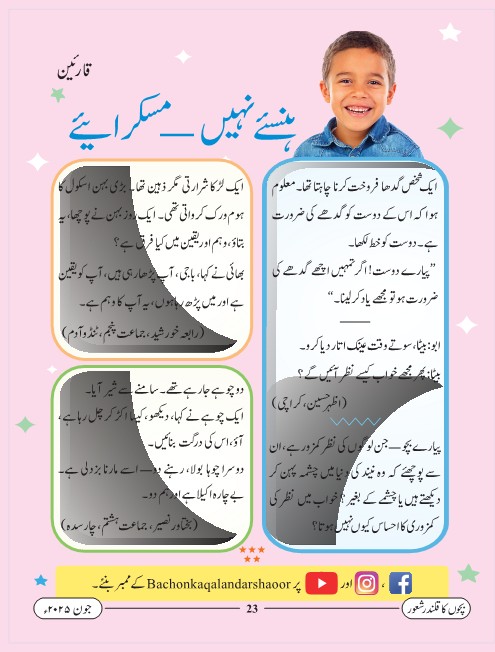 قارئین
ہنسئے نہیں — مسکرائیے
ایک شخص گدھا فروخت کرنا چاہتا تھا۔ معلوم
ہوا کہ اس کے دوست کو گدھے کی ضرورت
ہے۔ دوست کو خط لکھا۔
”پیارے دوست! اگر تمہیں اچھے گدھے کی
ضرورت ہو تو مجھے یاد کر لینا۔“
ابو: بیٹا، سوتے وقت عینک اتار دیا کرو۔
بیٹا: پھر مجھے خواب کیسے نظر آئیں گے؟
(اظہر حسین، کراچی)
پیارے بچو — جن لوگوں کی نظر کمزور ہے، ان
سے پوچھئے کہ وہ نیند کی دنیا میں چشمہ پہن کر
دیکھتے ہیں یا چشمے کے بغیر؟ خواب میں نظر کی
کمزوری کا احساس کیوں نہیں ہوتا؟
ایک لڑکا شرارتی مگر ذہین تھا۔ بڑی بہن اسکول کا
ہوم ورک کرواتی تھی۔ ایک روز بہن نے پوچھا، یہ
بتاؤ، وہم اور یقین میں کیا فرق ہے؟
بھائی نے کہا، باجی، آپ پڑھا رہی ہیں، آپ کو یقین
ہے اور میں پڑھ رہا ہوں، یہ آپ کا وہم ہے۔
(رابعہ خورشید، جماعت پنجم، ٹنڈو آدم)
دو چوہے جا رہے تھے۔ سامنے سے شیر آیا۔
ایک چوہے نے کہا، دیکھو، کیسا اکڑ کر چل رہا ہے،
آؤ، اس کی درگت بنائیں۔
دوسرا چوہا بولا، رہنے دو — اسے مارنا بزدلی ہے۔
بے چارہ اکیلا ہے اور ہم دو۔
(بختاور نصیر، جماعت ہشتم، چارسدہ)
، اور پر Bachonkaqalandarshaoor کے ممبر بنئے۔
بچوں کا قلندر شعور
23
جون ۲۰۲۵ء